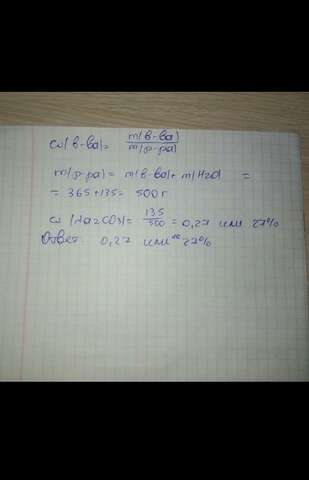 ω(в-ва)= m(в-ва)/m(р-ра)
m(р-ра)= m(в-ва)+m(H2O) =
= 365+135= 500 г
ω (Na2CO3)= 135/500 = 0,27 или 27%
Ответ: 0,27 или 27%